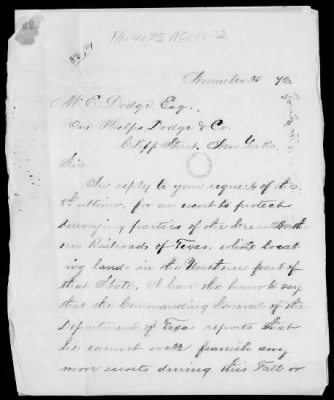 November 30 72
W. E. Dodge Esq.
Care Phelps Dodge & Co.
Cliff Street, New York.
Sir
In reply to your request of the
8th ultimo, for an escort to protect
surveying parties of the Great North
ern Railroads of Texas, while locat
ing lands in the Western part of
that State, I have the honor to say
that the Commanding General of the
Department of Texas reports that
he cannot well furnish any
more escorts during this Fall or